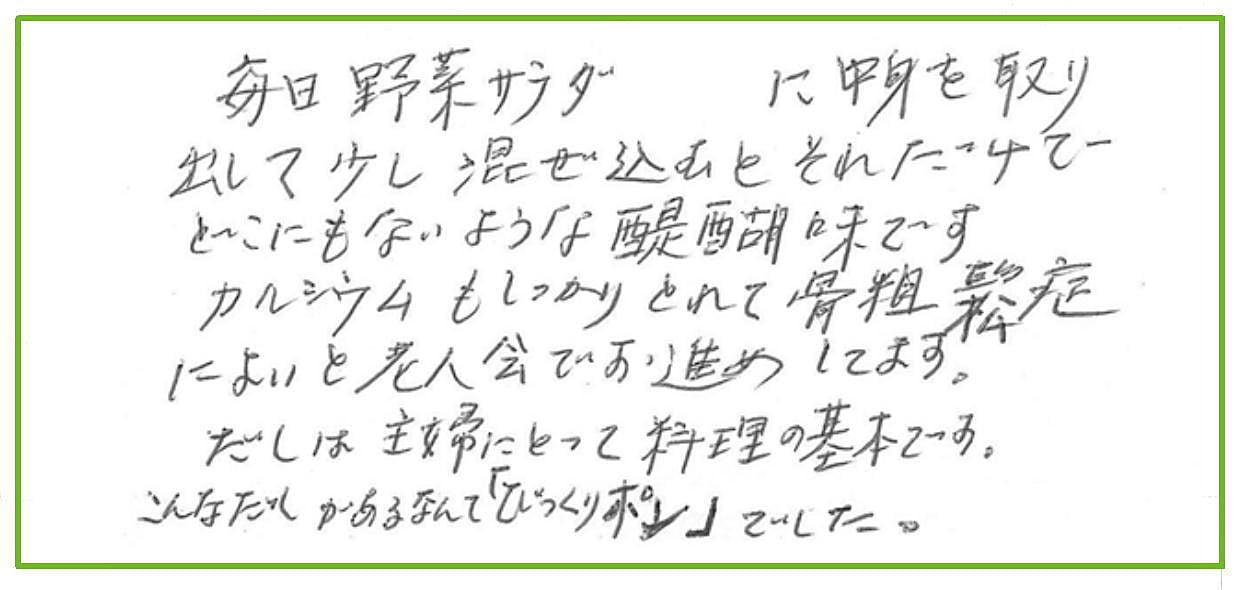 毎日野菜サラダ　　　に中身を取り
出して少し混ぜ込むとそれだけで
どこにもないような醍醐味です
カルシウムもしっかりとれて骨粗鬆症
によいと老人会でお進めしてます。
だしは主婦にとって料理の基本です。
こんなだしがあるなんて「びっくりポン」でした。